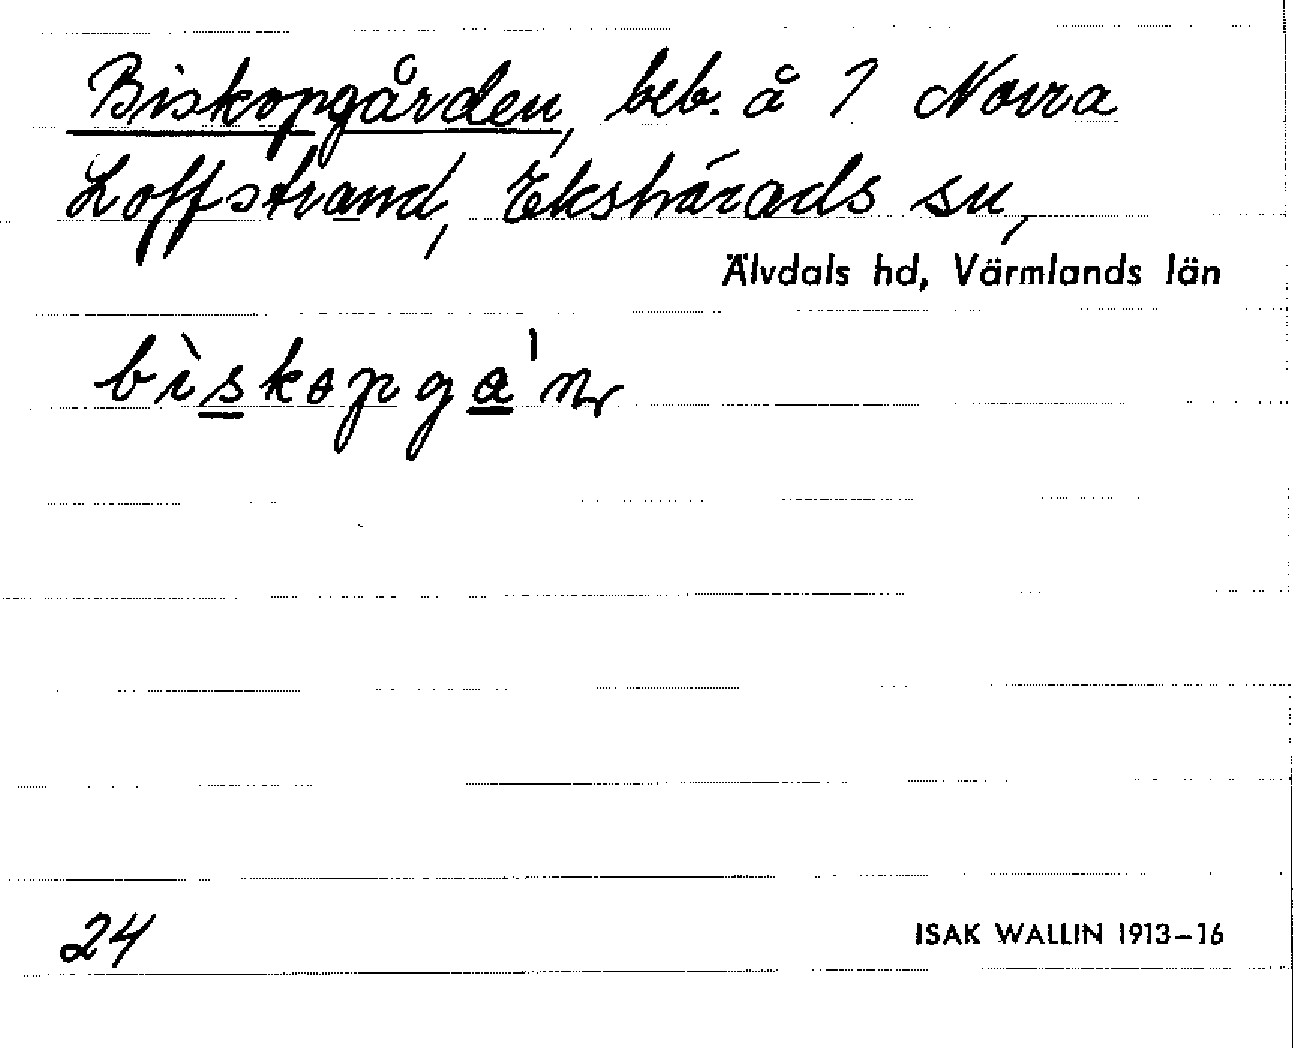 Biskopgården, beb. å ? Norra
Loffstrand, Ekshärads sn,
Älvdals hd, Värmlands län
bìskopga'nr
24
ISAK WALLIN 1913–16